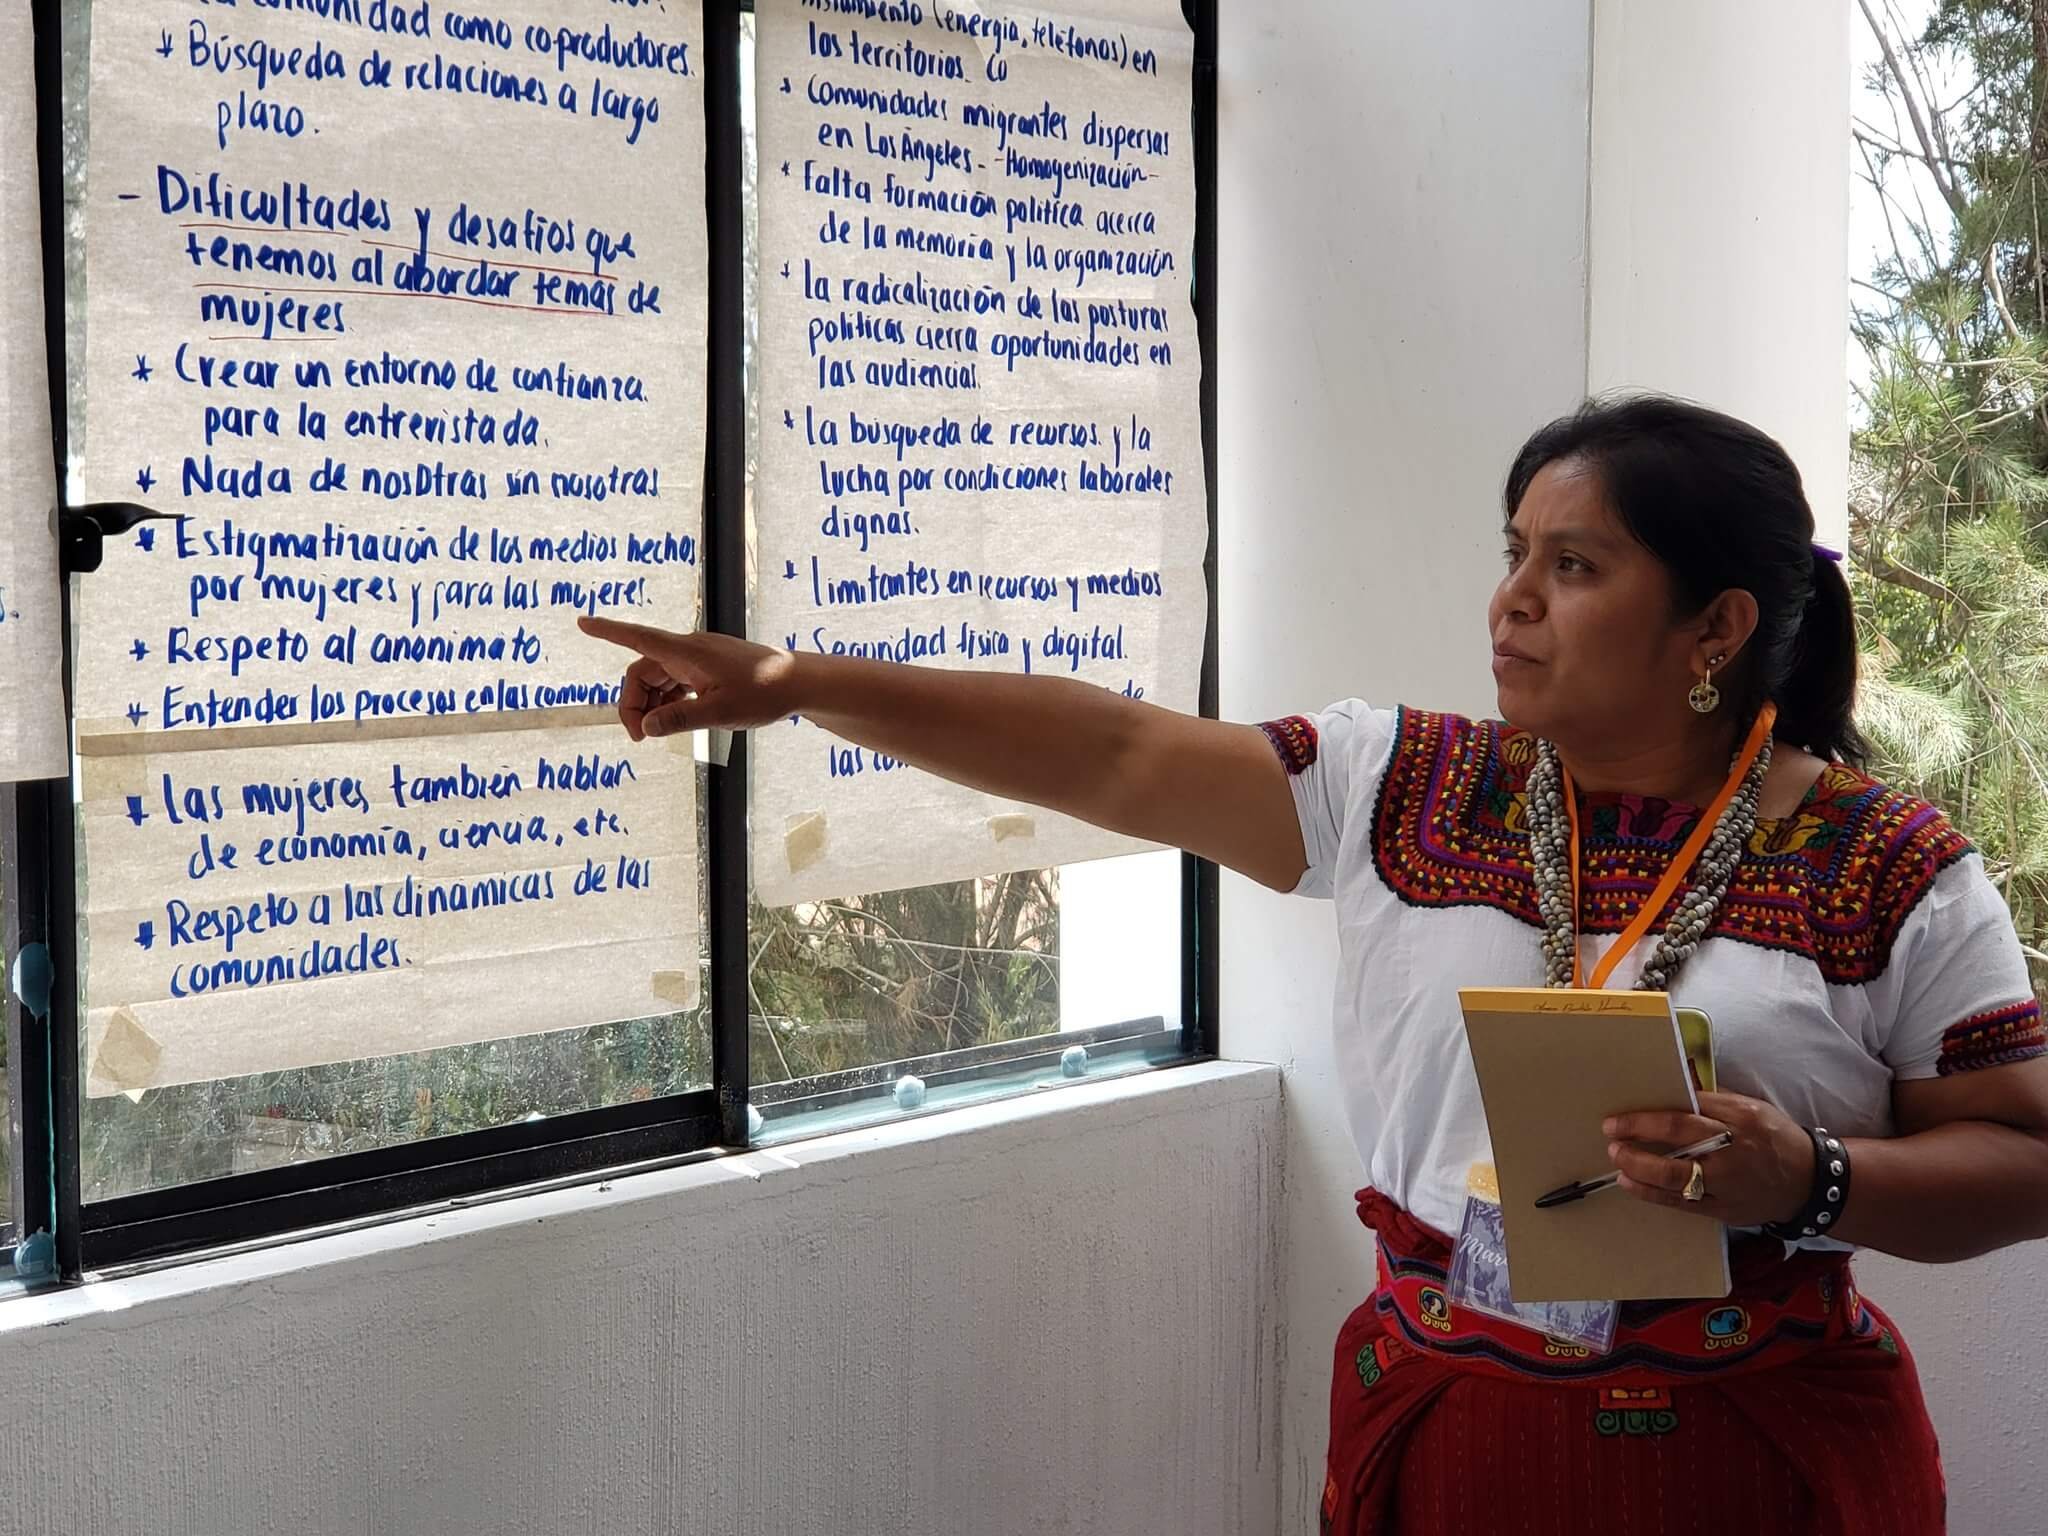 comunidad como coproductores.
* Búsqueda de relaciones a largo
plazo.
- Dificultades y desafíos que
tenemos al abordar temas de
mujeres.
* Crear un entorno de confianza.
para la entrevistada.
* Nada de nosotras sin nosotras
* Estigmatización de los medios hechos
por mujeres y para las mujeres.
* Respeto al anonimato.
* Entender los procesos en las comunid
* Las mujeres también hablan
de economía, ciencia, etc.
* Respeto a las dinámicas de las
comunidades.
(energía, teléfonos) en
los territorios. Co
* Comunidades migrantes dispersas
en Los Ángeles. -Homogenización-
* Falta formación política acerca
de la memoria y la organización.
* La radicalización de las posturas
políticas cierra oportunidades en
las audiencias.
* La búsqueda de recursos. y la
lucha por condiciones laborales
dignas.
* Limitantes en recursos y medios
* Seguridad física y digital.
de
las